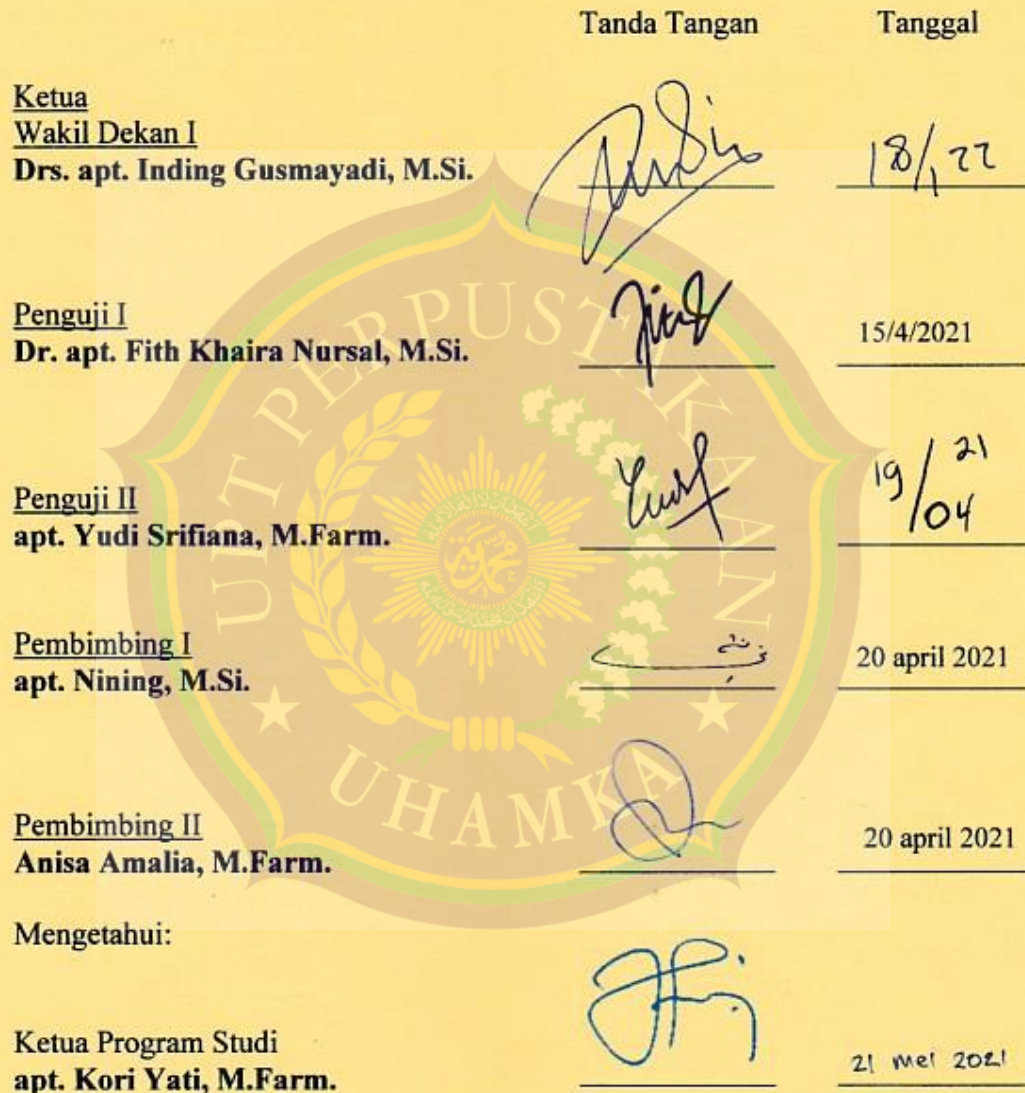 Tanda Tangan Tanggal
Ketua
Wakil Dekan I
Drs. apt. Inding Gusmayadi, M.Si. 18/1 22
Penguji I
Dr. apt. Fith Khaira Nursal, M.Si. 15/4/2021
Penguji II
apt. Yudi Srifiana, M.Farm. 19/04 21
Pembimbing I
apt. Nining, M.Si. 20 april 2021
Pembimbing II
Anisa Amalia, M.Farm. 20 april 2021
Mengetahui:
Ketua Program Studi
apt. Kori Yati, M.Farm. 21 mei 2021
UPT PERPUSTAKAAN
UHAMKA